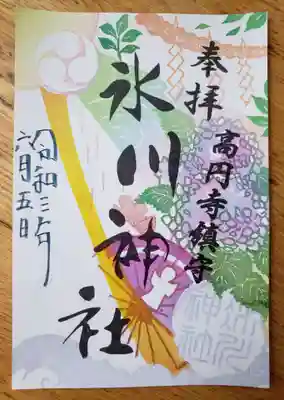 奉拝
高円寺鎮守
氷川神社
令和三年
六月五日